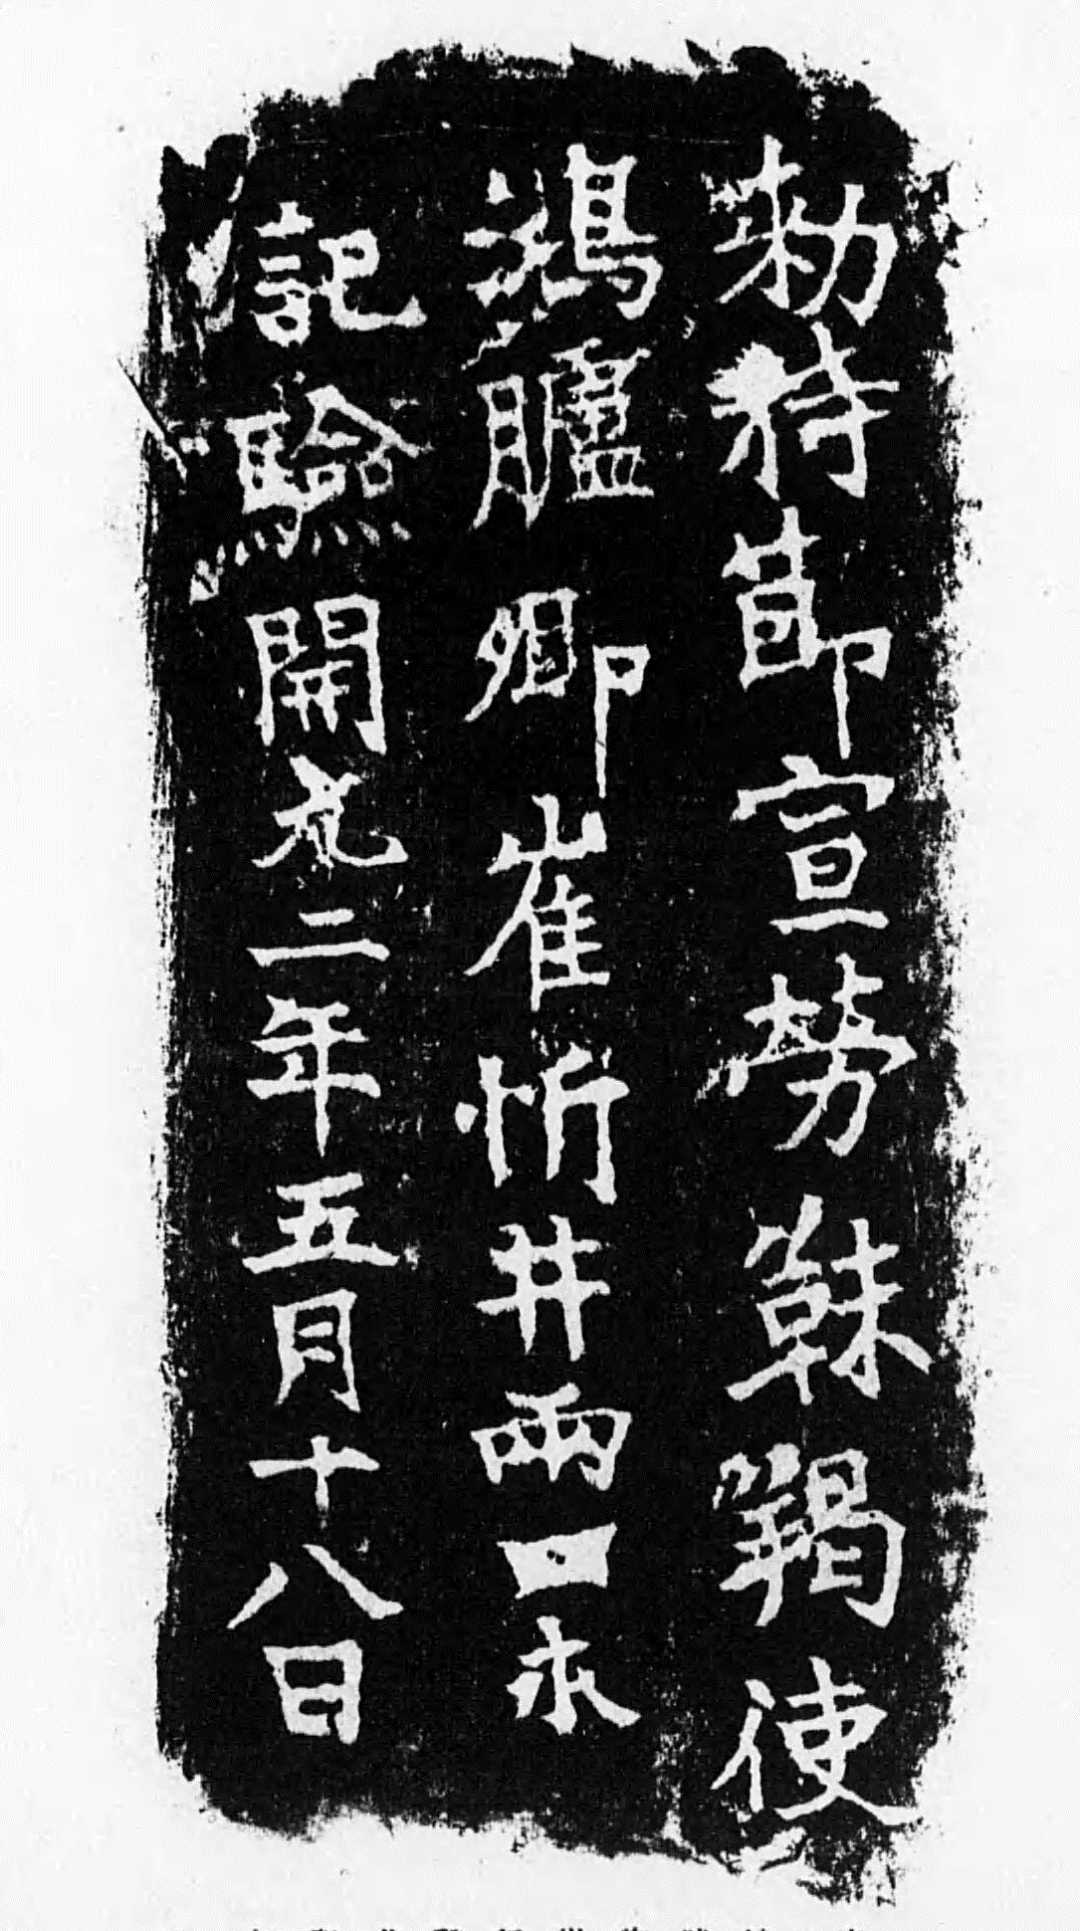 勅持莭宣勞靺羯使
鴻臚卿崔忻井兩口永
記驗開元二年五月十八日